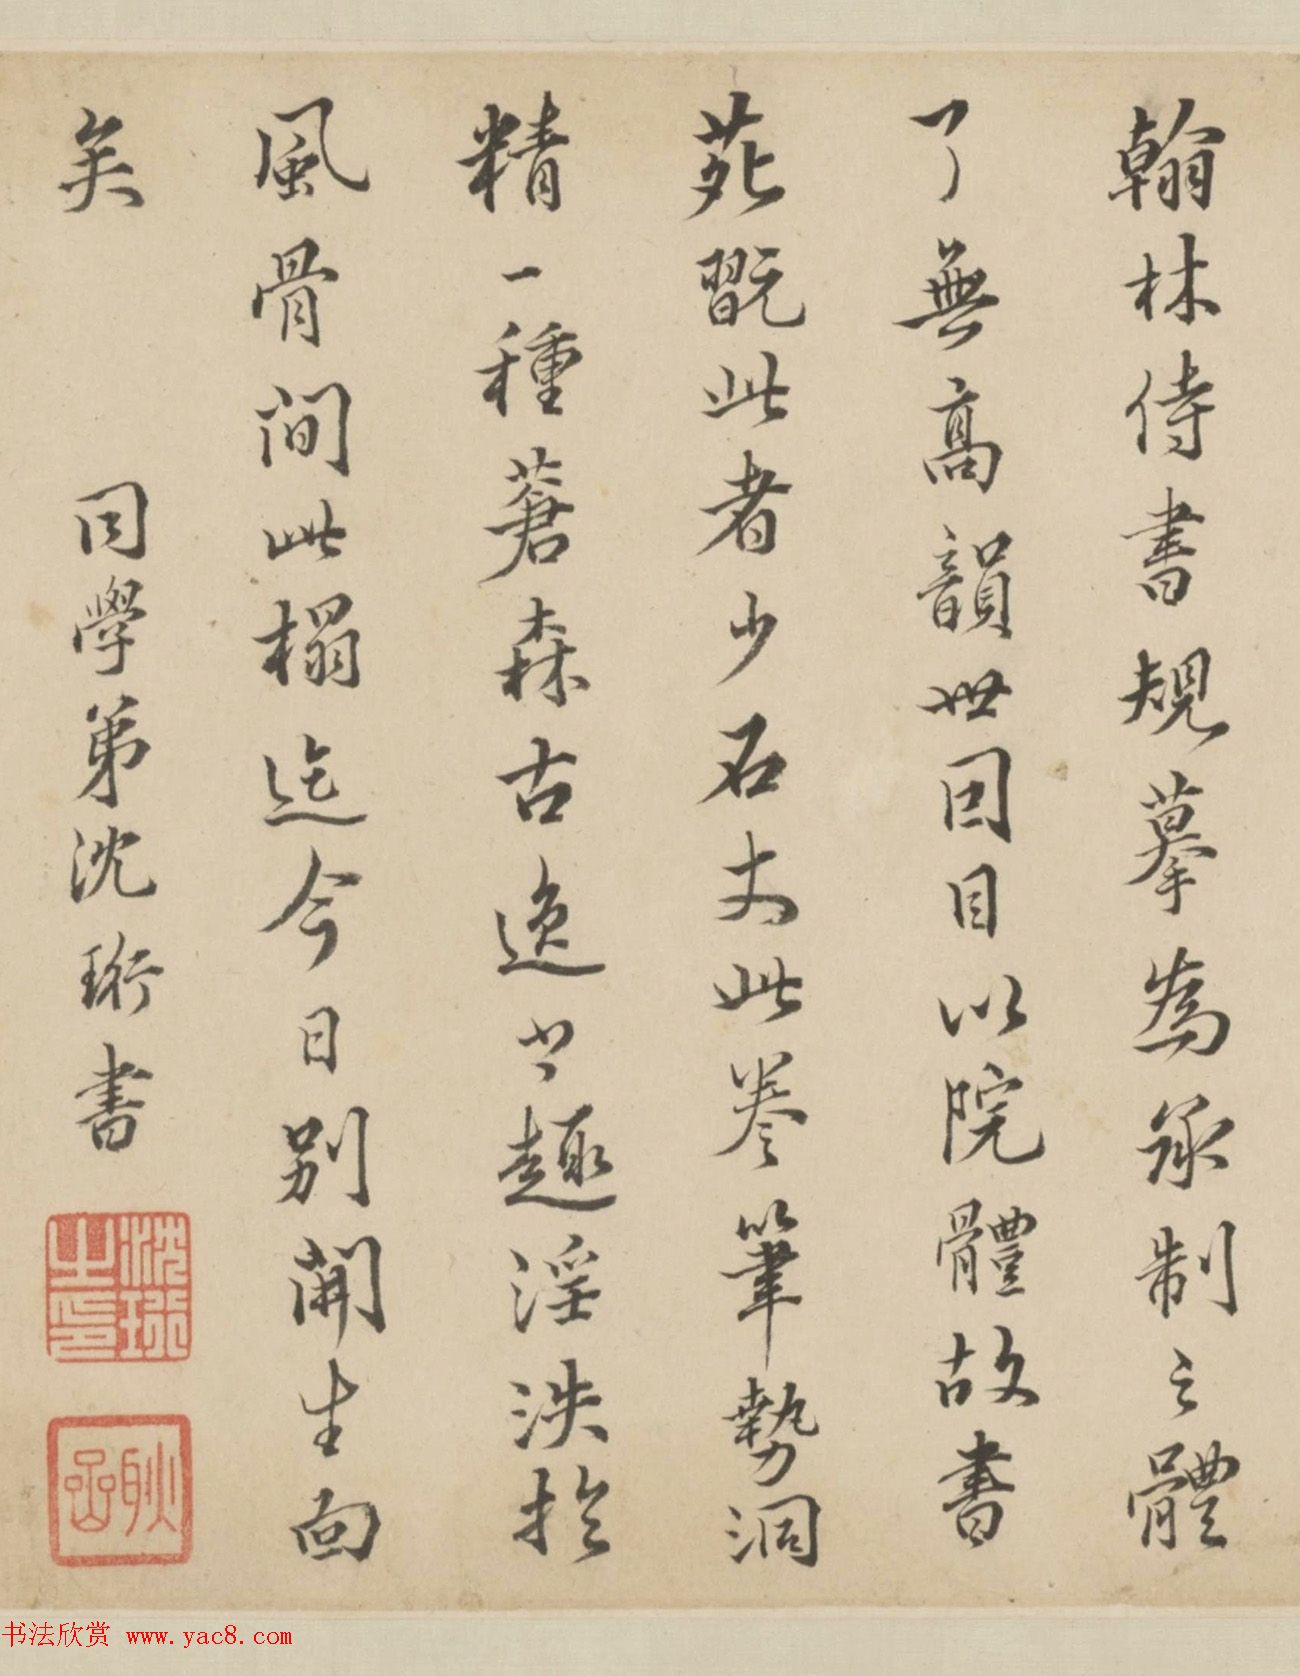 翰林侍書規摹為承制之體
了無高韻世因目以院體故書
苑翫此者少石丈此卷筆勢洞
精一種蒼森古逸之趣淫泆於
風骨間此榻迄今日別開生面
矣
同學弟沈珩書
沈珩之印
耿嵒
书法欣赏 www.yac8.com